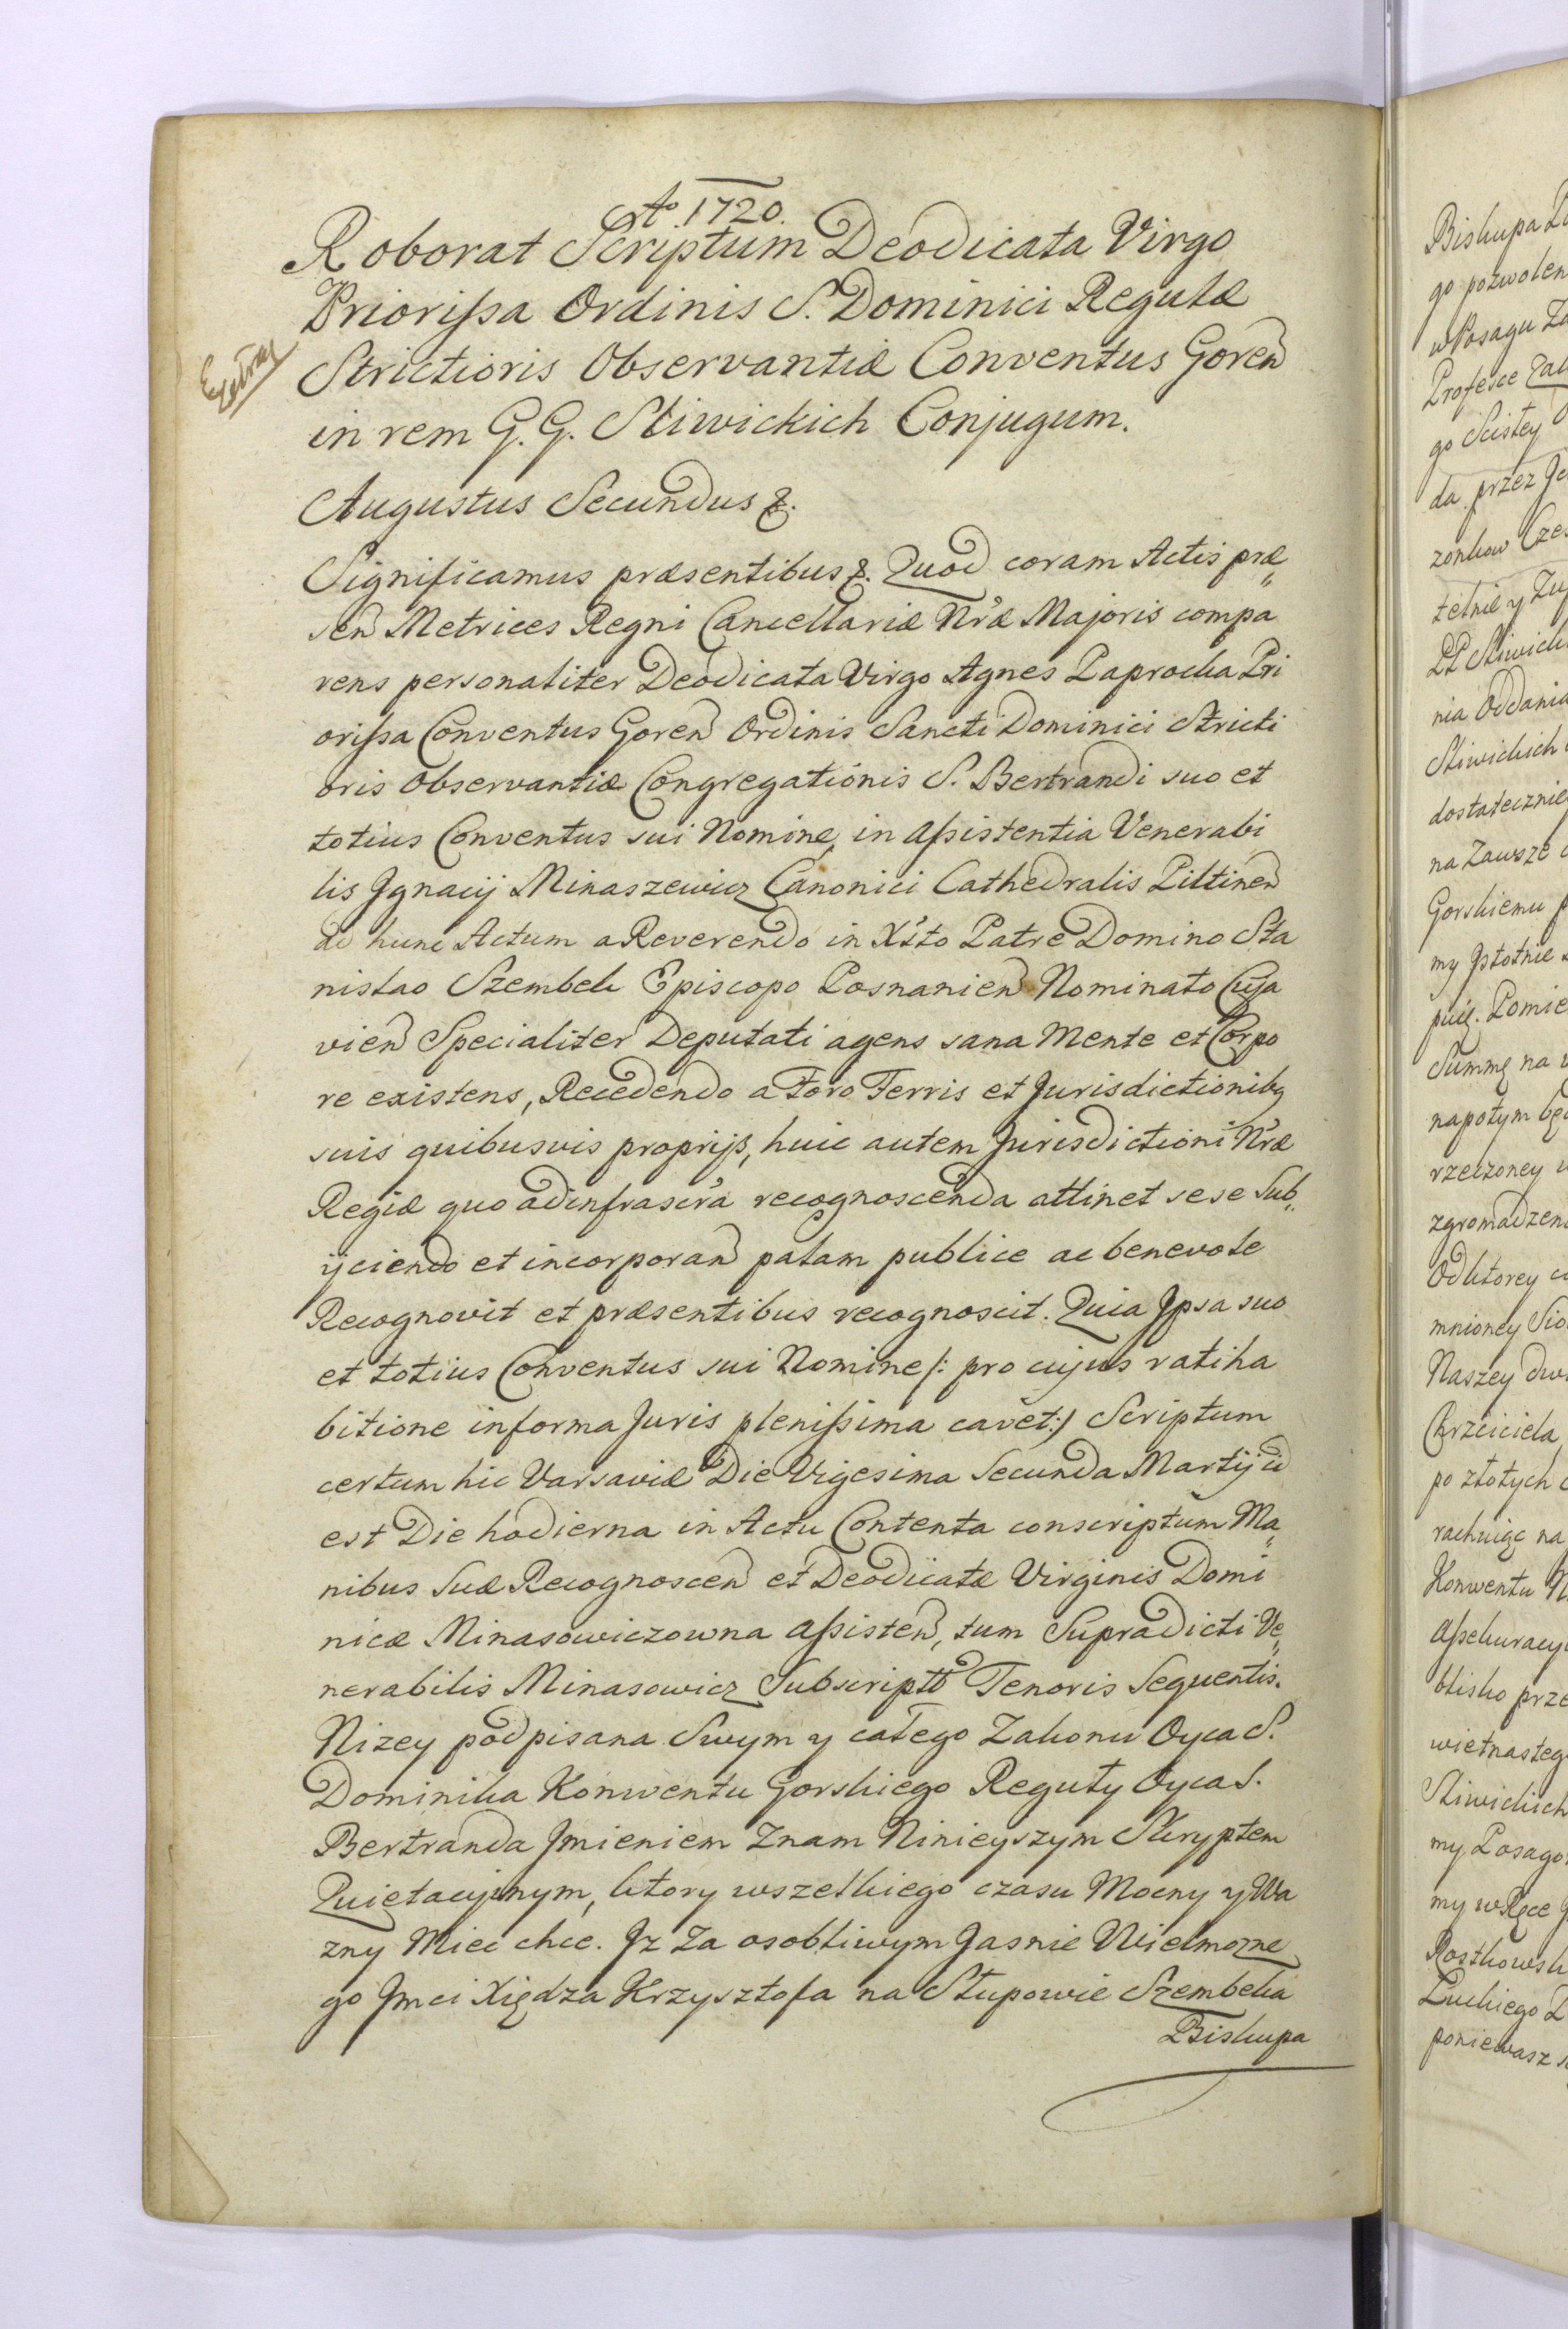 Ao 1720.
Roborat Scriptum Deodicata Virgo
Priorissa Ordinis S. Dominici Regulæ
Strictioris Observantiæ Conventus Goren
in rem G. G. Sliwickich Conjugum.
Augustus Secundus &.
Significamus præsentibus &. Quod coram Actis præ„
sen Metrices Regni Cancellariæ Nræ Majoris compa
rens personaliter Deodicata Virgo Agnes Paprocka Pri
orissa Conventus Goren Ordinis Sancti Dominici Stricti
oris Observantiæ Congregationis S. Bertrandi suo et
totius Conventus sui Nomine, in Assistentia Venerabi
lis Ignacij Minaszewicz Canonici Cathedralis Piltinen
ad hunc Actum a Reverendo in Xsto Patre Domino Sta
nislao Szembek Episcopo Posnanien Nominato Cuja
vien Specialiter Deputati agens sana Mente et Corpo
re existens, Recedendo a Foro Terris et Jurisdictionibq
suis quibusvis proprijs, huic autem Jurisdictioni Nræ
Regiæ quo ad infrascra recognoscenda attinet sese Sub„
ijciendo et incorporan palam publice ac benevole
Recognovit et præsentibus recognoscit. Quia Ipsa suo
et totius Conventus sui Nomine /: pro cujus ratiha
bitione in forma Juris plenissima cavet :/ Scriptum
certum hic Varsaviæ Die Vigesima Secunda Martij id
est Die hodierna in Actu Contenta conscriptum Ma„
nibus Suæ Recognoscen et Deodicatæ Virginis Domi
nicæ Minasowiczowna Assisten, tum Supradicti Ve„
nerabilis Minasowicz Subscriptt Tenoris Sequentis.
Nizey podpisana Swym y całego Zakonu Oyca S.
Dominika Konwentu Gorskiego Reguły Oyca S.
Bertranda Jmieniem Znam Ninieyszym Skryptem
Quietacyinym, ktory wszelkiego czasu Mocny y Wa
zny Miec chce. Jz Za osobliwym Jasnie Wielmozne
go Jmci Xiędza Krzysztofa na Słupowie Szembeka
Biskupa
go pozwolen
w Posagu
Profesce
go Scisłey
da przez
zonkow
nia Oddania
Sliwickich
dostatecznie
na Zawsze
Gorskiemu
my Jstotnie
Summę na
napotym
rzeczoney
Od ktorey
mnioney
Naszey
Krzciciela
po złotych
rachuiąc na
Konwentu
blisko prze
Sliwickich
my Posago
my w Ręce
Rostkowsk
Łuckiego
poniewasz